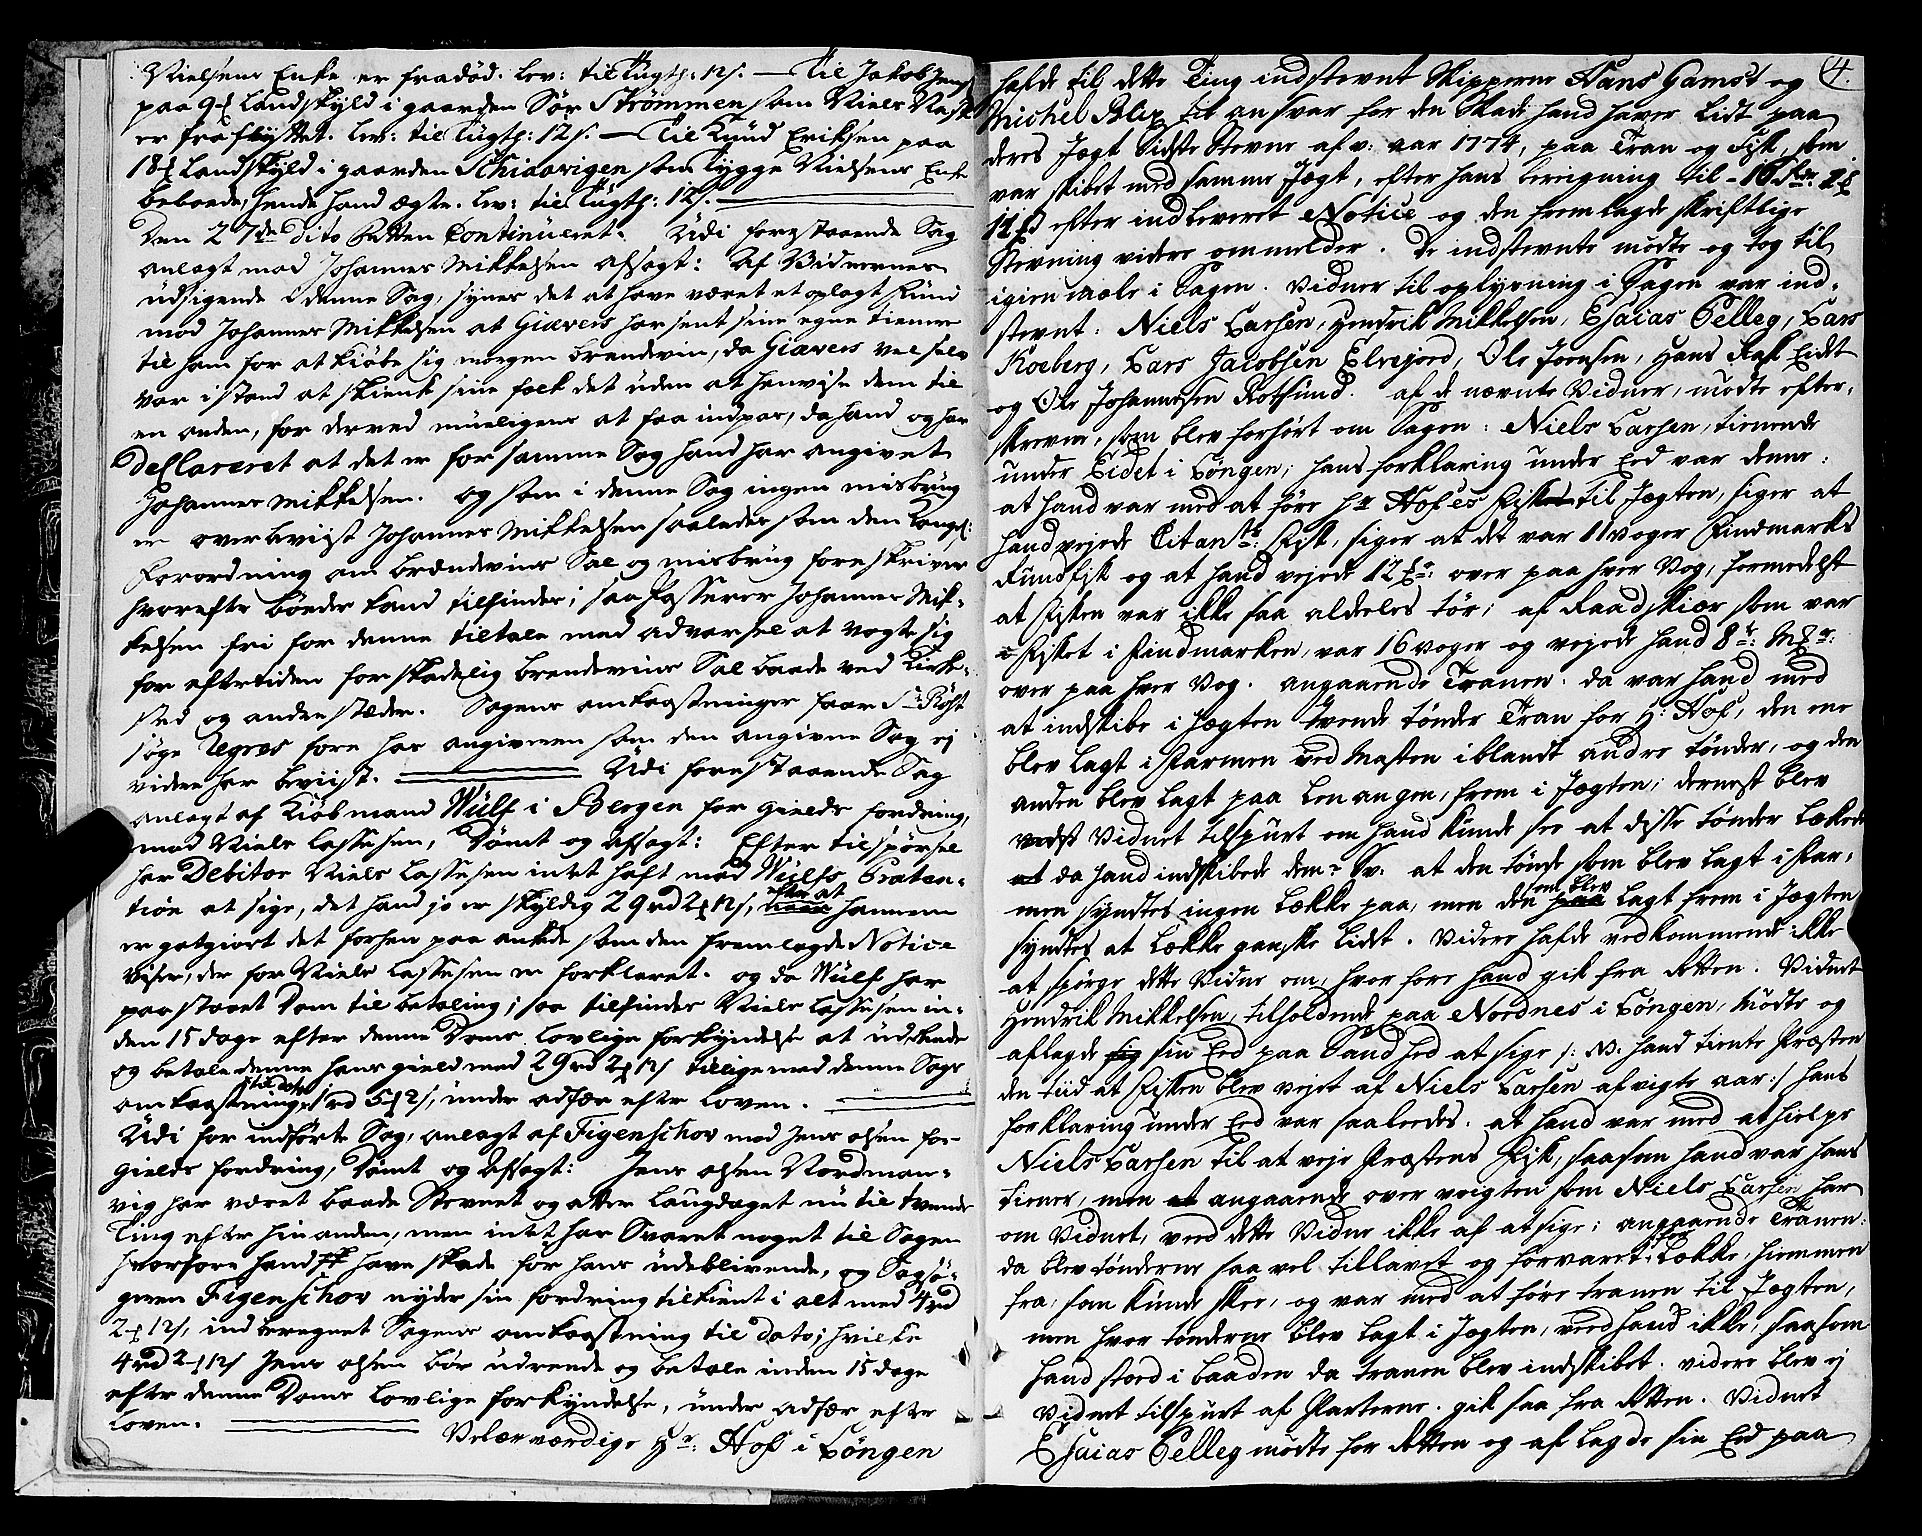 Nielsens Enke er fradöd. lev: til Tugth: 12 s. — Til Jakob Jens:
paa 9 ₤ Landskyld i gaarden Sör Strömmen som Niels Rask
er fraflyttet. lev: til Tugth: 12 s. — Til Knud Eriksen paa
18 ₤ Landskyld i gaarden Skidavigen som Tygge Nielsens Enke
beboede, hende hand ægte. lev: til Tugth: 12 s.
Den 27de dito Retten Continueret. Udi forestaaende Sag
anlagt mod Johannes Mikkelsen afsagt: Af Vidnernes
udsigende i denne Sag, synes det at have været et oplagt Fund
mod Johannes Mikkelsen at Giævers har sent sine egne tienere
til ham for at kiöbe sig nogen brendevin, da Giævers vel selv
var i stand at skienk sine folk det uden at henvise dem til
en anden, for derved mueligens at faa indpas, da hand og har
Declareret at det er for samme Sag hand har angivet
Johannes Mikkelsen. og som i denne Sag ingen misbrug
er overbeviist Johannes Mikkelsen saaledes som den Kongel:
Forordning om brændevins Sal og misbrug foreskriver
hvorefter böeder kand tilfindes; saa Passerer Johannes Mik-
kelsen fri for denne tiltale med advarsel at vogte sig
for eftertiden for skadelig brendevins Sal baade ved Kirke-
sted og anden stæder. Sagens omkaastninger faar Sr. Röst
söge Regres fore hos angiveren som den angivne Sag ej
videre har beviist. Udi forestaaende Sag
anlagt af Kiöbmand Wulf i Bergen for gields fordring,
mod Niels Lassesen, Dömt og afsagt: Efter tilspörsel
har Debitor Niels Lassesen intet haft mod Wulfs Præten-
tion at sige, det hand jo er skyldig 29 rd 2 ₻ 12 s, efter at hannem
er gotgiort det forhen paa ankede som den fremlagde Notice
viser, der for Niels Lassesen er forklaret. og da Wulf har
paastaaet Dom til betaling; saa tilfindes Niels Lassesen in-
den 15 dage efter denne Doms lovlige forkyndelse at udrede
og betale denne hans gield med 29 rd 2 ₻ 12 s tillige med denne Sags
omkaastninger til dato 1 rd 5 ₻ 2 s, under adfær efter loven.
Udi for indförte Sag, anlagt af Figenschov mod Jens Olsen for
gields fordring, Dömt og afsagt: Jens Olsen Nordman-
vig har været baade Stevnet og atter laugdaget nu til tvende
Ting efter hinanden, men intet har Svaret noget til Sagen
hvorfore hand have skade for hans udeblivende, og Sagsö-
geren Figenschov nyder sin fordring tilkient i alt med 4 rd
2 ₻ 12 s, indberegnet Sagens omkaastning til dato; hvilke
4 rd 2 ₻ 12 s Jens Olsen bör udrede og betale inden 15 dage
efter denne Doms lovlige forkyndelse, under adfær efter
loven.
Velærværdige Hr: Hof i Löngen
4.
hafde til dette Ting indstevnt Skipperne Hans Gamst og
Michel Blix til ansvar for den Skade hand haver lidt paa
deres Jægt Sidste Stevne af v: aar 1774, paa Tran og Fisk, som
var skibet med samme Jægt, efter hans beregning til - 16
12 s efter indleveret Notice og den fremlagde skriftlige
Stevning videre ommelder. De indstevnte mödte og tog til
igien mæle i Sagen. Vidner til oplysning i Sagen var ind-
stevnt: Niels Larsen, Hendrik Mikkelsen, Esaias Pelleg, Lars
Koeberg, Lars Jacobsen Elvejord, Ole Joensen, Hans Rask Eidet
og Ole Johannesen Rotsund. af de nævnte Vidner, mödte efter-
skrevne, som blev forhört om Sagen: Niels Larsen, tienende
under Eidet i Löngen, hans forklaring under Eed var denne:
at hand var med at före Hr Hofes Fisk til Jægten, siger at
hand vejede Citantens Fisk, siger at det var 11 voger Findmarks
Rundfisk og at hand vejede 12 over paa hver Vog, formedelst
at Fisken var ikke saa aldeles tör; af Raadskiær som var
Fisket i Findmarken, var 16 voger og vejede hand 8te Mkr:
over paa hver Vog. angaaende Tranen. da var hand med
at indskibe i Jægten tvende tönder Tran for H: Hof, den ene
blev lagt i Rarmen ved Masten iblandt andre tönder, og den
anden blev lagt paa Lenangen, frem i Jægten; dernest blev
Vidnet tilspurt om hand kunde see at disse tönder lækede
da hand indskibede dem? Sv: at den tönde som blev lagt i Rar-
men syndtes ingen Lække paa, men den som blev lagt frem i Jægten
syndtes at Lække ganske lidt. Videre hafde vedkommende ikke
at spörge dette Vidne om, hvor fore hand gik fra Retten. Vidnet
Hendrik Mikkelsen, tilholdende paa Nordnes i Löngen, Mödte og
aflagde sin Eed paa Sandhed at sige /: NB. hand tiente Præsten
den tiid at Fisken blev vejet af Niels Larsen afvigte aar :/ hans
forklaring under Eed var saaledes. at hand var med at hielpe
Niels Larsen til at veje Præstens Fisk, saasom hand var hans
tiener, men angaaende over veigten som Niels Larsen har
om Vidnet, veed dette Vidne ikke af at sige; angaaende Tranen:
da blev tönderne saa vel tillavet og forvaret for Lække, hiemmen
fra, som kunde skee, og var med at före tranen til Jægten,
men hvor tönderne blev lagt i Jægten, veed hand ikke, saasom
hand stod i baaden da tranen blev indskibet. videre blev ej
Vidnet tilspurt af Parterne. gik saa fra Retten. Vidnet
Esaias Pelleg mödte for Retten og aflagde sin Eed paa